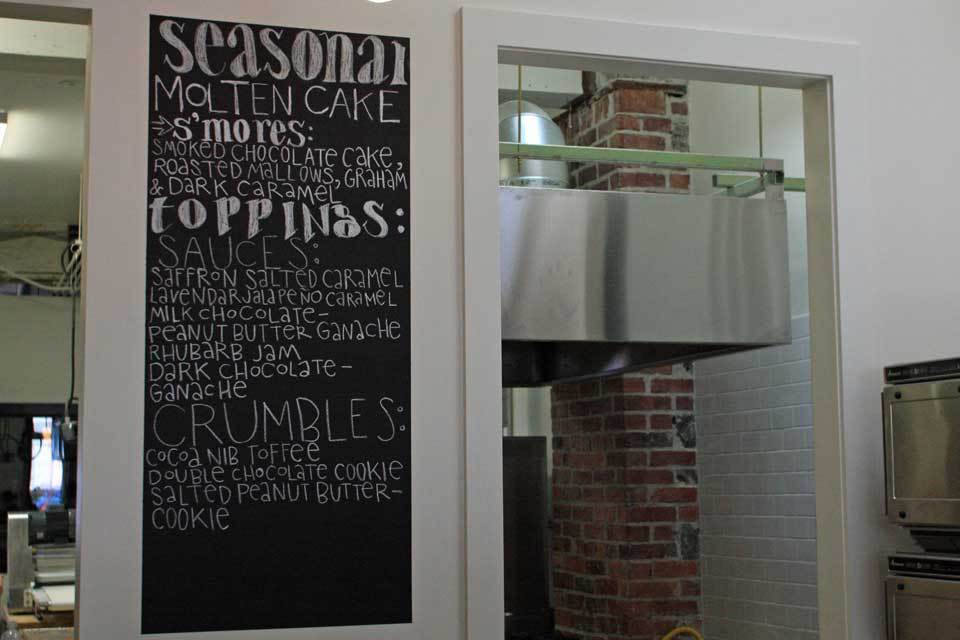 seasonal
MOLTEN CAKE
→s'mores:
SMOKED CHOCOLATE CAKE,
ROASTED MALLOWS, GRAHAM
& DARK CARAMEL
toppings:
SAUCES:
SAFFRON SALTED CARAMEL
LAVENDAR JALAPEÑO CARAMEL
MILK CHOCOLATE–
PEANUT BUTTER GANACHE
RHUBARB JAM
DARK CHOCOLATE–
GANACHE
CRUMBLES:
COCOA NIB TOFFEE
DOUBLE CHOCOLATE COOKIE
SALTED PEANUT BUTTER–
COOKIE